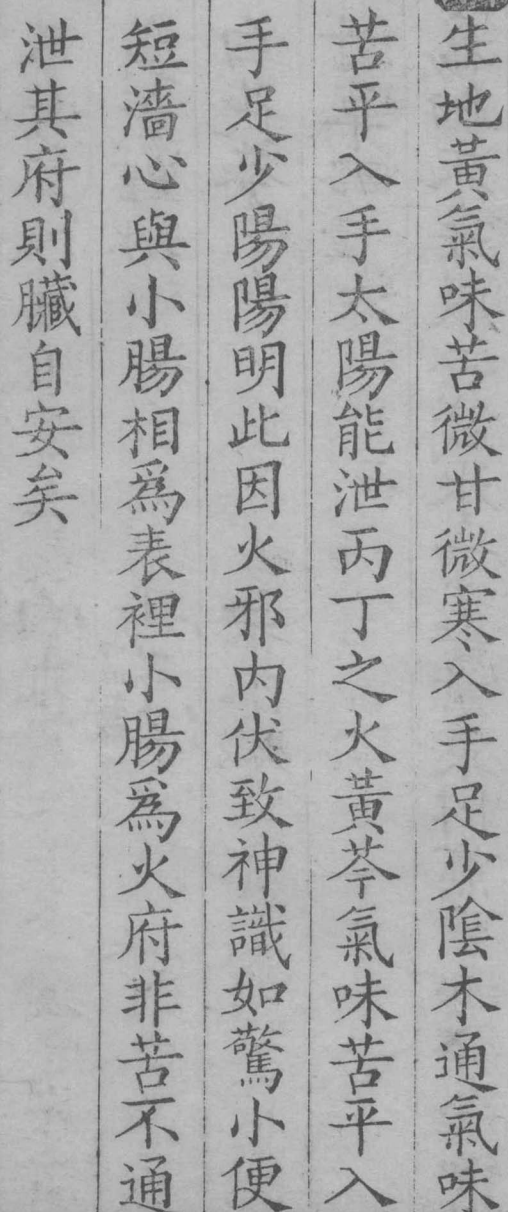 生地黃氣味苦微甘微寒入手足少陰木通氣味
苦平入手太陽能泄丙丁之火黃芩氣味苦平入
手足少陽陽明此因火邪内伏致神識如驚小便
短濇心與小腸相爲表裡小腸爲火府非苦不通
泄其府則臟自安矣